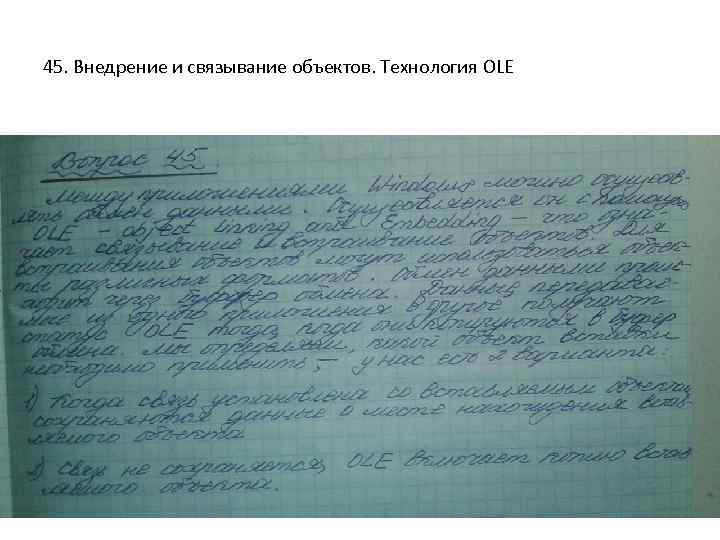 45. Внедрение и связывание объектов. Технология OLE
Вопрос 45.
Между приложениями Windows можно осуществ-
лять обмен данными. Осуществляется он с помощью
OLE – object linking and Embedding – что озна-
чает связывание и встраивание объектов. Для
встраивания объектов могут использоваться объек-
ты различных форматов. Обмен данными проис-
ходит через буфер обмена. Данные, передавае-
мые из одного приложения в другое получают
статус OLE тогда, когда они копируются в буфер
обмена. Мы определяем, какой объект вставки
необходимо применить, – у нас есть 2 варианта:
1) Когда связь установлена со вставляемым объектом,
сохраняются данные о месте нахождения встав-
ляемого объекта
2) Связь не сохраняется, OLE включает копию встав
ляемого объекта.